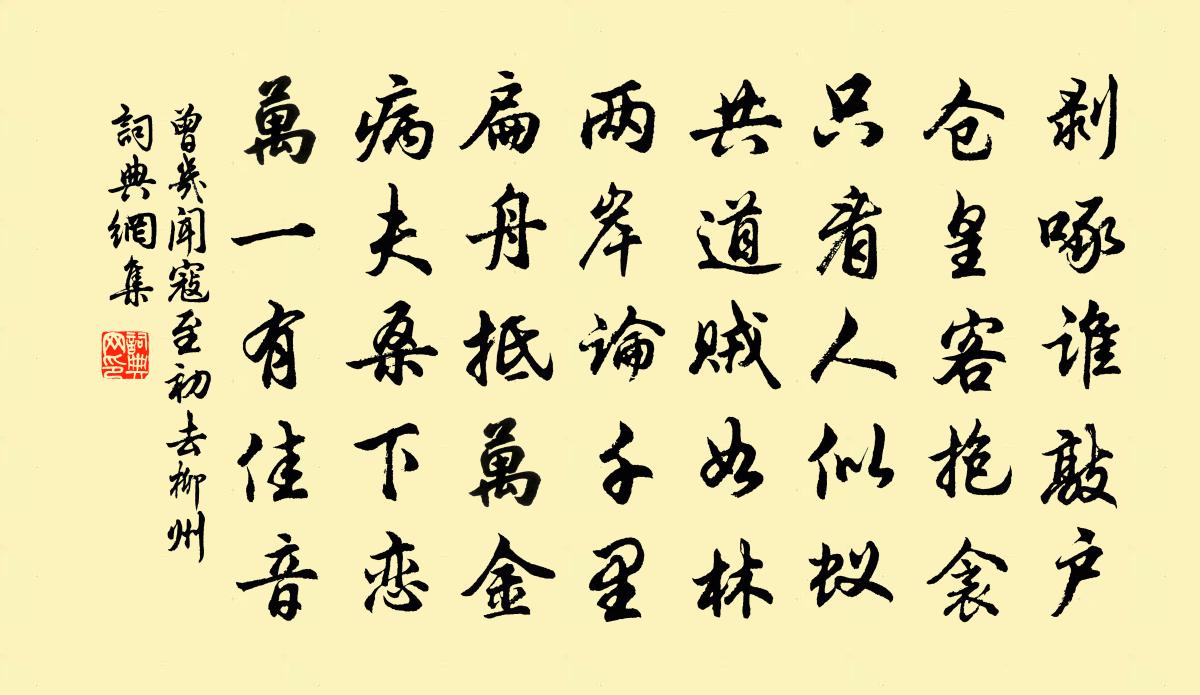 剥啄谁敲户
仓皇客抱衾
只看人似蚁
共道贼如林
两岸論千里
扁舟抵萬金
病夫桑下恋
萬一有佳音
曾幾聞寇至初去柳州
詞典網集
詞典
网印